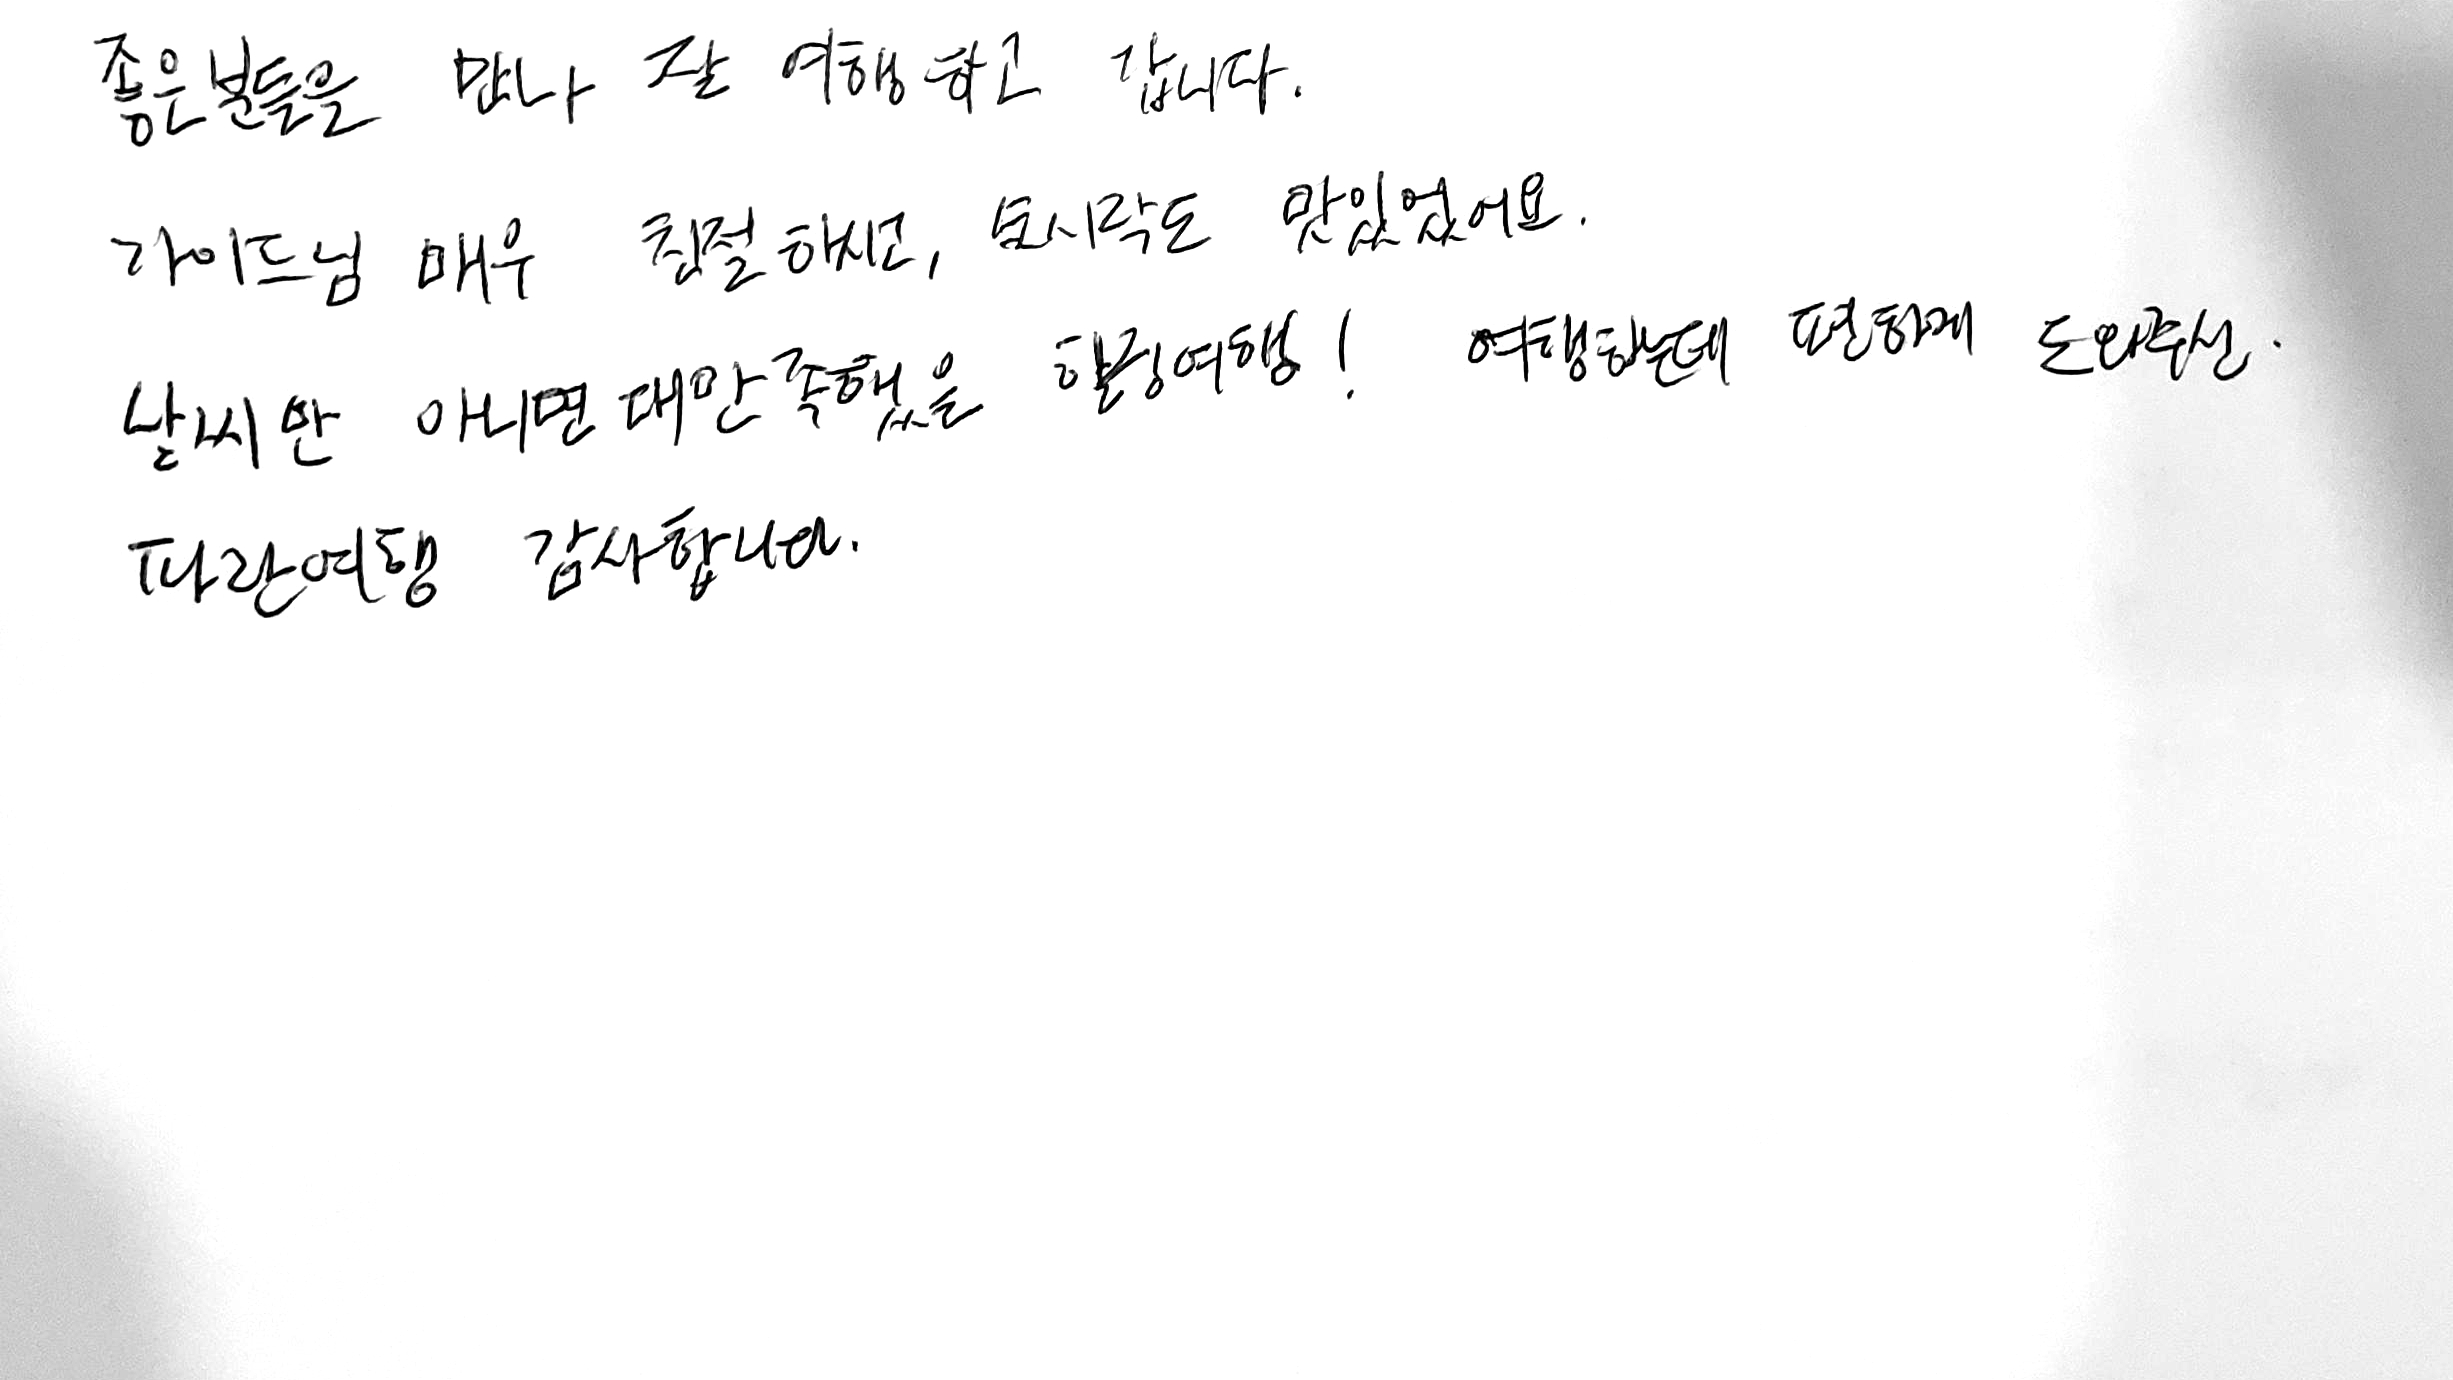 좋은분들을 만나 잘 여행하고 갑니다.
가이드님 매우 친절하시고, 도시락도 맛있었어요.
날씨만 아니면 대만족했을 힐링여행! 여행하는데 편하게 도와주신.
파란여행 감사합니다.